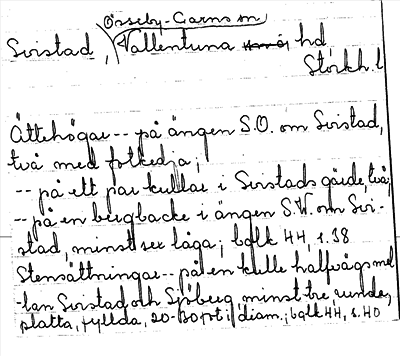 Össeby-Garns sn
Svistad, Vallentuna hd
Stockh. l
Ättehögar -- på ängen S.O. om Svistad,
två med fotkedja;
-- på ett par kullar i Svistads gärde, två;
-- på en bergbacke i ängen S.V. om Svi-
stad, minst sex låga; bqlk 44, s. 38
Stensättningar -- på en kulle halfvägs mel
-lan Svistad och Sjöberg, minst tre, runda,
platta, fyllda, 20-30 fot i diam.; bqlk 44, s. 40